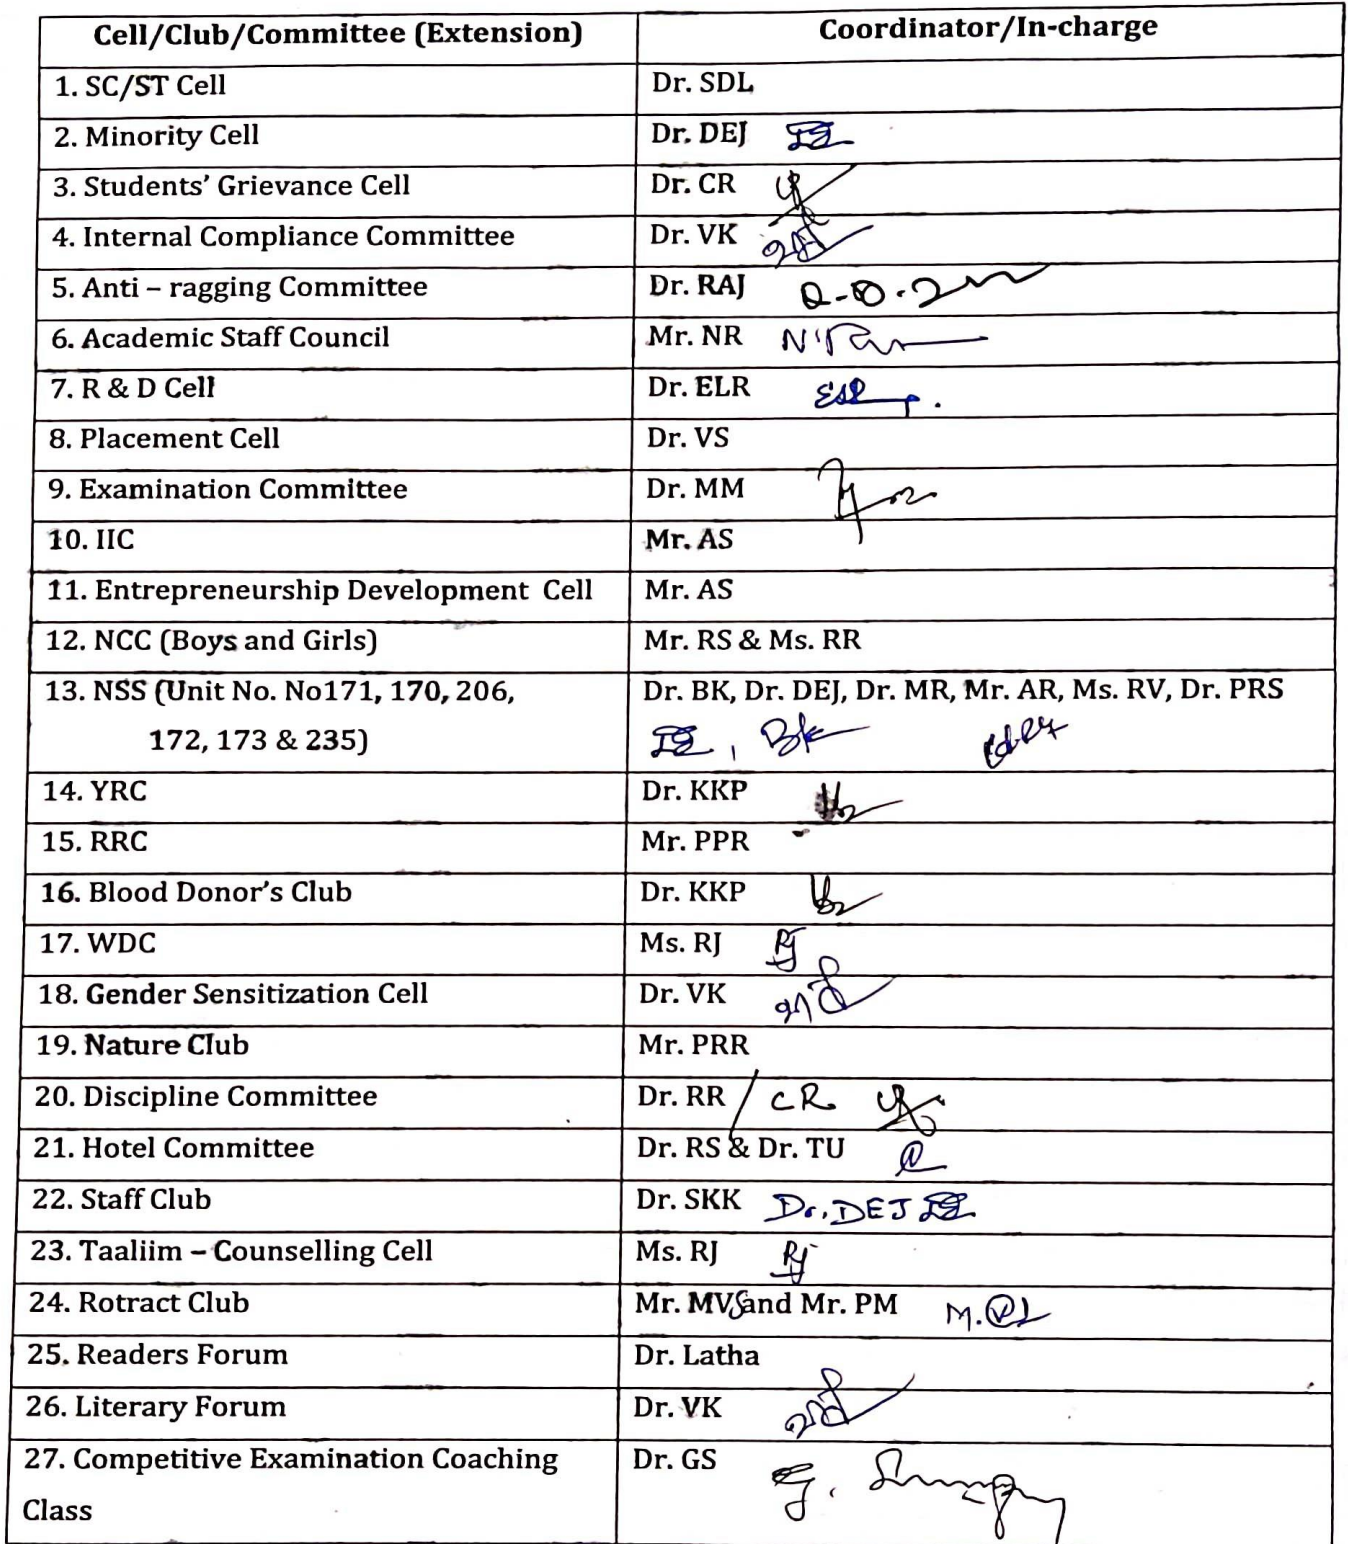 Cell/Club/Committee (Extension) Coordinator/In-charge
1. SC/ST Cell Dr. SDL
2. Minority Cell Dr. DEJ
3. Students' Grievance Cell Dr. CR
4. Internal Compliance Committee Dr. VK
5. Anti – ragging Committee Dr. RAJ
6. Academic Staff Council Mr. NR
7. R & D Cell Dr. ELR
8. Placement Cell Dr. VS
9. Examination Committee Dr. MM
10. IIC Mr. AS
11. Entrepreneurship Development Cell Mr. AS
12. NCC (Boys and Girls) Mr. RS & Ms. RR
13. NSS (Unit No. No171, 170, 206, Dr. BK, Dr. DEJ, Dr. MR, Mr. AR, Ms. RV, Dr. PRS
172, 173 & 235) Bk
14. YRC Dr. KKP
15. RRC Mr. PPR
16. Blood Donor's Club Dr. KKP
17. WDC Ms. RJ RJ
18. Gender Sensitization Cell Dr. VK
19. Nature Club Mr. PRR
20. Discipline Committee Dr. RR / CR
21. Hotel Committee Dr. RS & Dr. TU
22. Staff Club Dr. SKK Dr. DEJ
23. Taaliim – Counselling Cell Ms. RJ RJ
24. Rotract Club Mr. MVS and Mr. PM
25. Readers Forum Dr. Latha
26. Literary Forum Dr. VK
27. Competitive Examination Coaching Dr. GS
Class